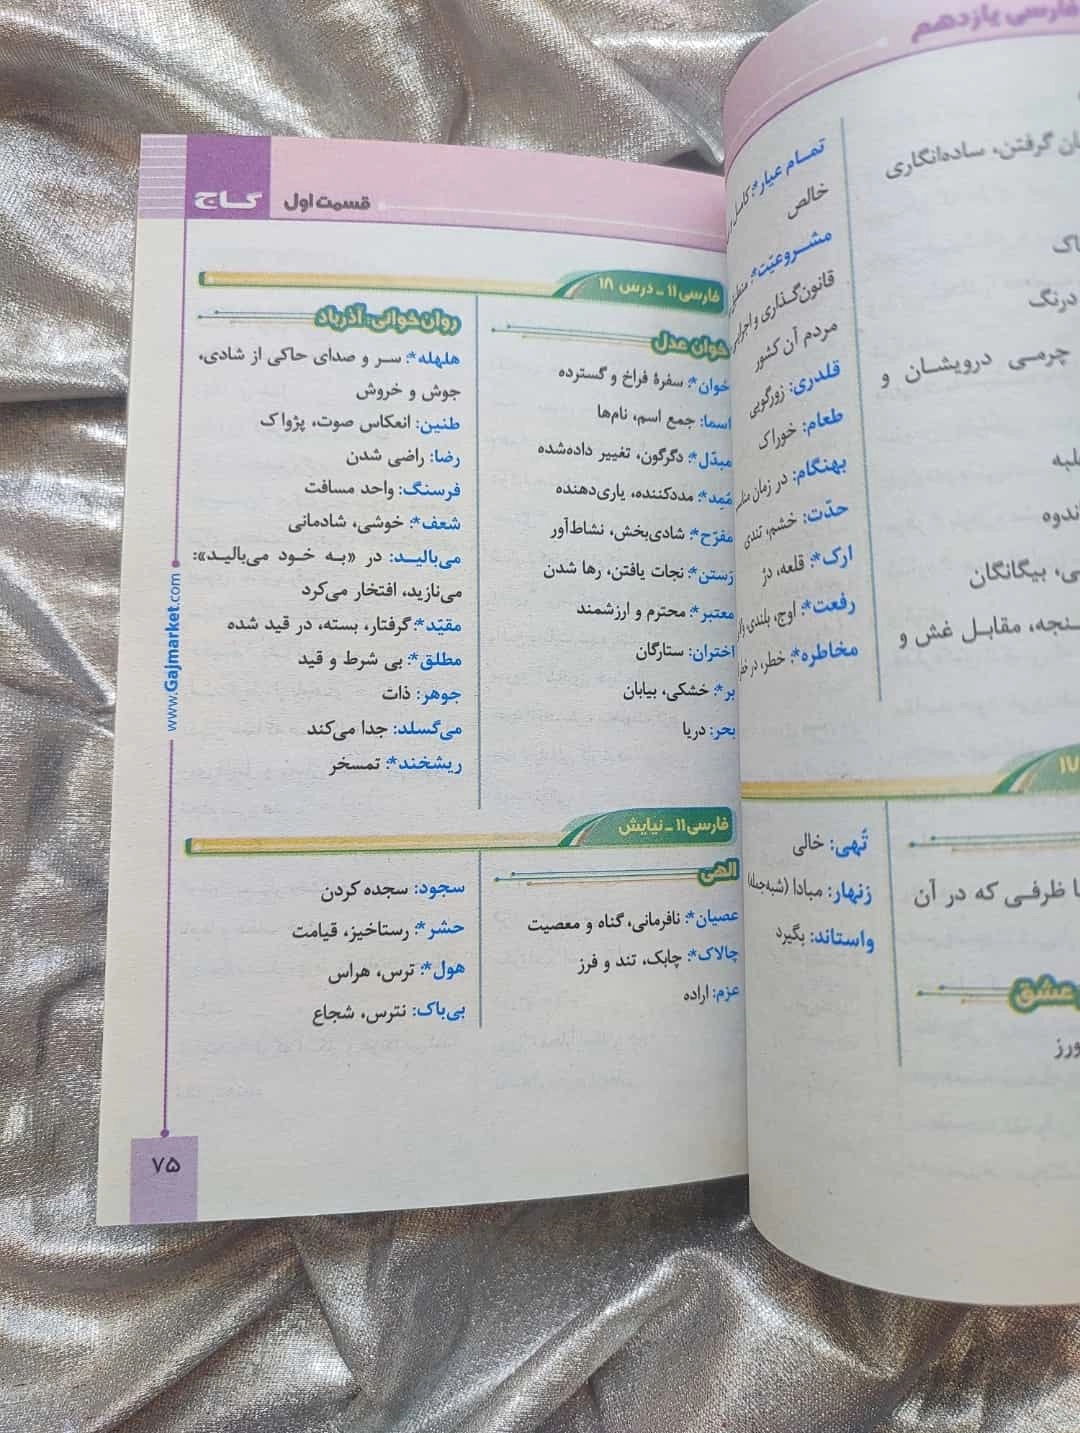 فارسی یازدهم
گرفتن، ساده‌انگاری
درنگ
چرمی درویشان و
بیگانگان
مقابل غش و
۱۷
ظرفی که در آن
عشق
تمام عیار*: کامل
خالص
مشروعیّت*:
قانون‌گذاری و
مردم آن کشور
قلدری: زورگویی
طعام: خوراک
بهنگام: در زمان
حدّت: خشم، تندی
ارک*: قلعه، دژ
رفعت*: اوج، بلندی
مخاطره*: خطر،
تُهی: خالی
زنهار: مبادا (شبه‌جمله)
واستاند: بگیرد
قسمت اول
گاج
فارسی ۱۱ ـ درس ۱۸
خوان عدل
خوان*: سفرهٔ فراخ و گسترده
اسما: جمع اسم، نام‌ها
مبدّل*: دگرگون، تغییر داده‌شده
مُمِد*: مددکننده، یاری‌دهنده
مفرّح*: شادی‌بخش، نشاط‌آور
رَستن*: نجات یافتن، رها شدن
معتبر*: محترم و ارزشمند
اختران: ستارگان
بر*: خشکی، بیابان
بحر: دریا
روان‌خوانی: آذرباد
هلهله*: سر و صدای حاکی از شادی،
جوش و خروش
طنین: انعکاس صوت، پژواک
رضا: راضی شدن
فرسنگ: واحد مسافت
شعف*: خوشی، شادمانی
می‌بالید: در «به خود می‌بالید»:
می‌نازید، افتخار می‌کرد
مقیّد*: گرفتار، بسته، در قید شده
مطلق*: بی شرط و قید
جوهر: ذات
می‌گسلد: جدا می‌کند
ریشخند*: تمسخر
فارسی ۱۱ ـ نیایش
الهی
عصیان*: نافرمانی، گناه و معصیت
چالاک*: چابک، تند و فرز
عزم: اراده
سجود: سجده کردن
حشر*: رستاخیز، قیامت
هول*: ترس، هراس
بی‌باک: نترس، شجاع
www.Gajmarket.com
۷۵